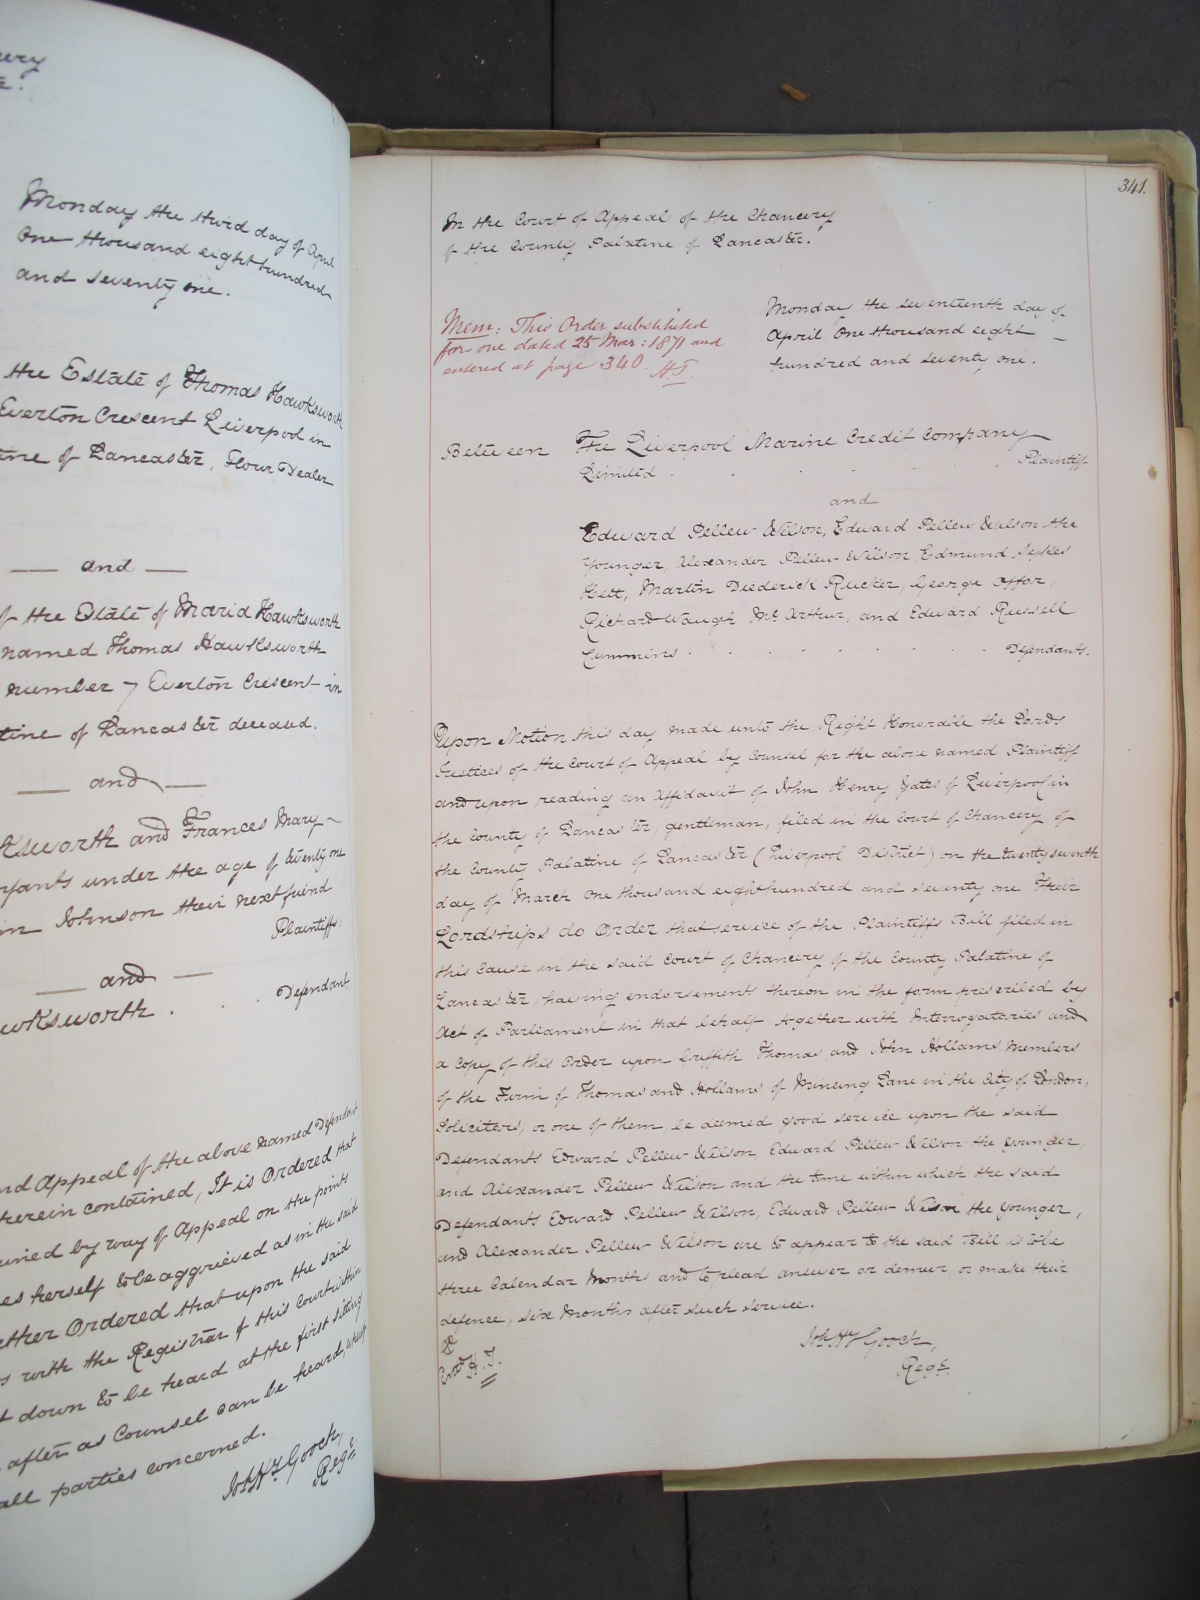 Monday the third day of April
One thousand eight hundred
and seventy one.
the Estate of Thomas Hawksworth
Everton Crescent Liverpool in
tine of Lancaster, Flour Dealer
and
of the Estate of Maria Hawksworth
named Thomas Hawksworth
number 7 Everton Crescent in
tine of Lancaster deceased.
and
ksworth and Frances Mary
nfants under the age of twenty one
Johnson their next friend
Plaintiffs.
and
wksworth . . . Defendant
nd Appeal of the above named Defendant
therein contained, It is Ordered that
by way of Appeal on the points
es herself to be aggrieved as in the said
rther Ordered that upon the said
s with the Registrar of this Court within
t down to be heard at the first sitting
after as Counsel can be heard,
all parties concerned.
Jno Hy Gooch,
Regr
341.
In the Court of Appeal of the Chancery
of the County Palatine of Lancaster.
Mem: This Order substituted
for one dated 25 Mar: 1871 and
entered at page 340. H.T.
Monday the seventeenth day of
April One thousand eight
hundred and seventy one.
Between The Liverpool Marine Credit Company
Limited . . . . . Plaintiff
and
Edward Pellew Wilson, Edward Pellew Wilson the
Younger, Alexander Pellew Wilson, Edmund Sykes
Hett, Martin Diederick Rucker, George Offor,
Richard Waugh McArthur, and Edward Russell
Cummins . . . . . . . . Defendants.
Upon Motion this day made unto the Right Honorable the Lords
Justices of the Court of Appeal by Counsel for the above named Plaintiff
and upon reading an Affidavit of John Henry Yates of Liverpool in
the County of Lancaster, gentleman, filed in the Court of Chancery of
the County Palatine of Lancaster (Liverpool District) on the twenty seventh
day of March One thousand eight hundred and seventy one Their
Lordships do Order that service of the Plaintiffs Bill filed in
this Cause in the said Court of Chancery of the County Palatine of
Lancaster, having endorsements thereon in the form prescribed by
Act of Parliament in that behalf, together with Interrogatories and
a Copy of this Order upon Griffith Thomas, and John Hollams, Members
of the Firm of Thomas and Hollams of Mincing Lane in the City of London,
Solicitors, or one of them, be deemed good service upon the said
Defendants Edward Pellew Wilson, Edward Pellew Wilson the younger,
and Alexander Pellew Wilson and the time within which the said
Defendants Edward Pellew Wilson, Edward Pellew Wilson the younger,
and Alexander Pellew Wilson are to appear to the said Bill is to be
three Calendar Months and to plead answer or demur or make their
defence, six Months after such service.
Jno Hy Gooch,
Regr
Entd H.T.